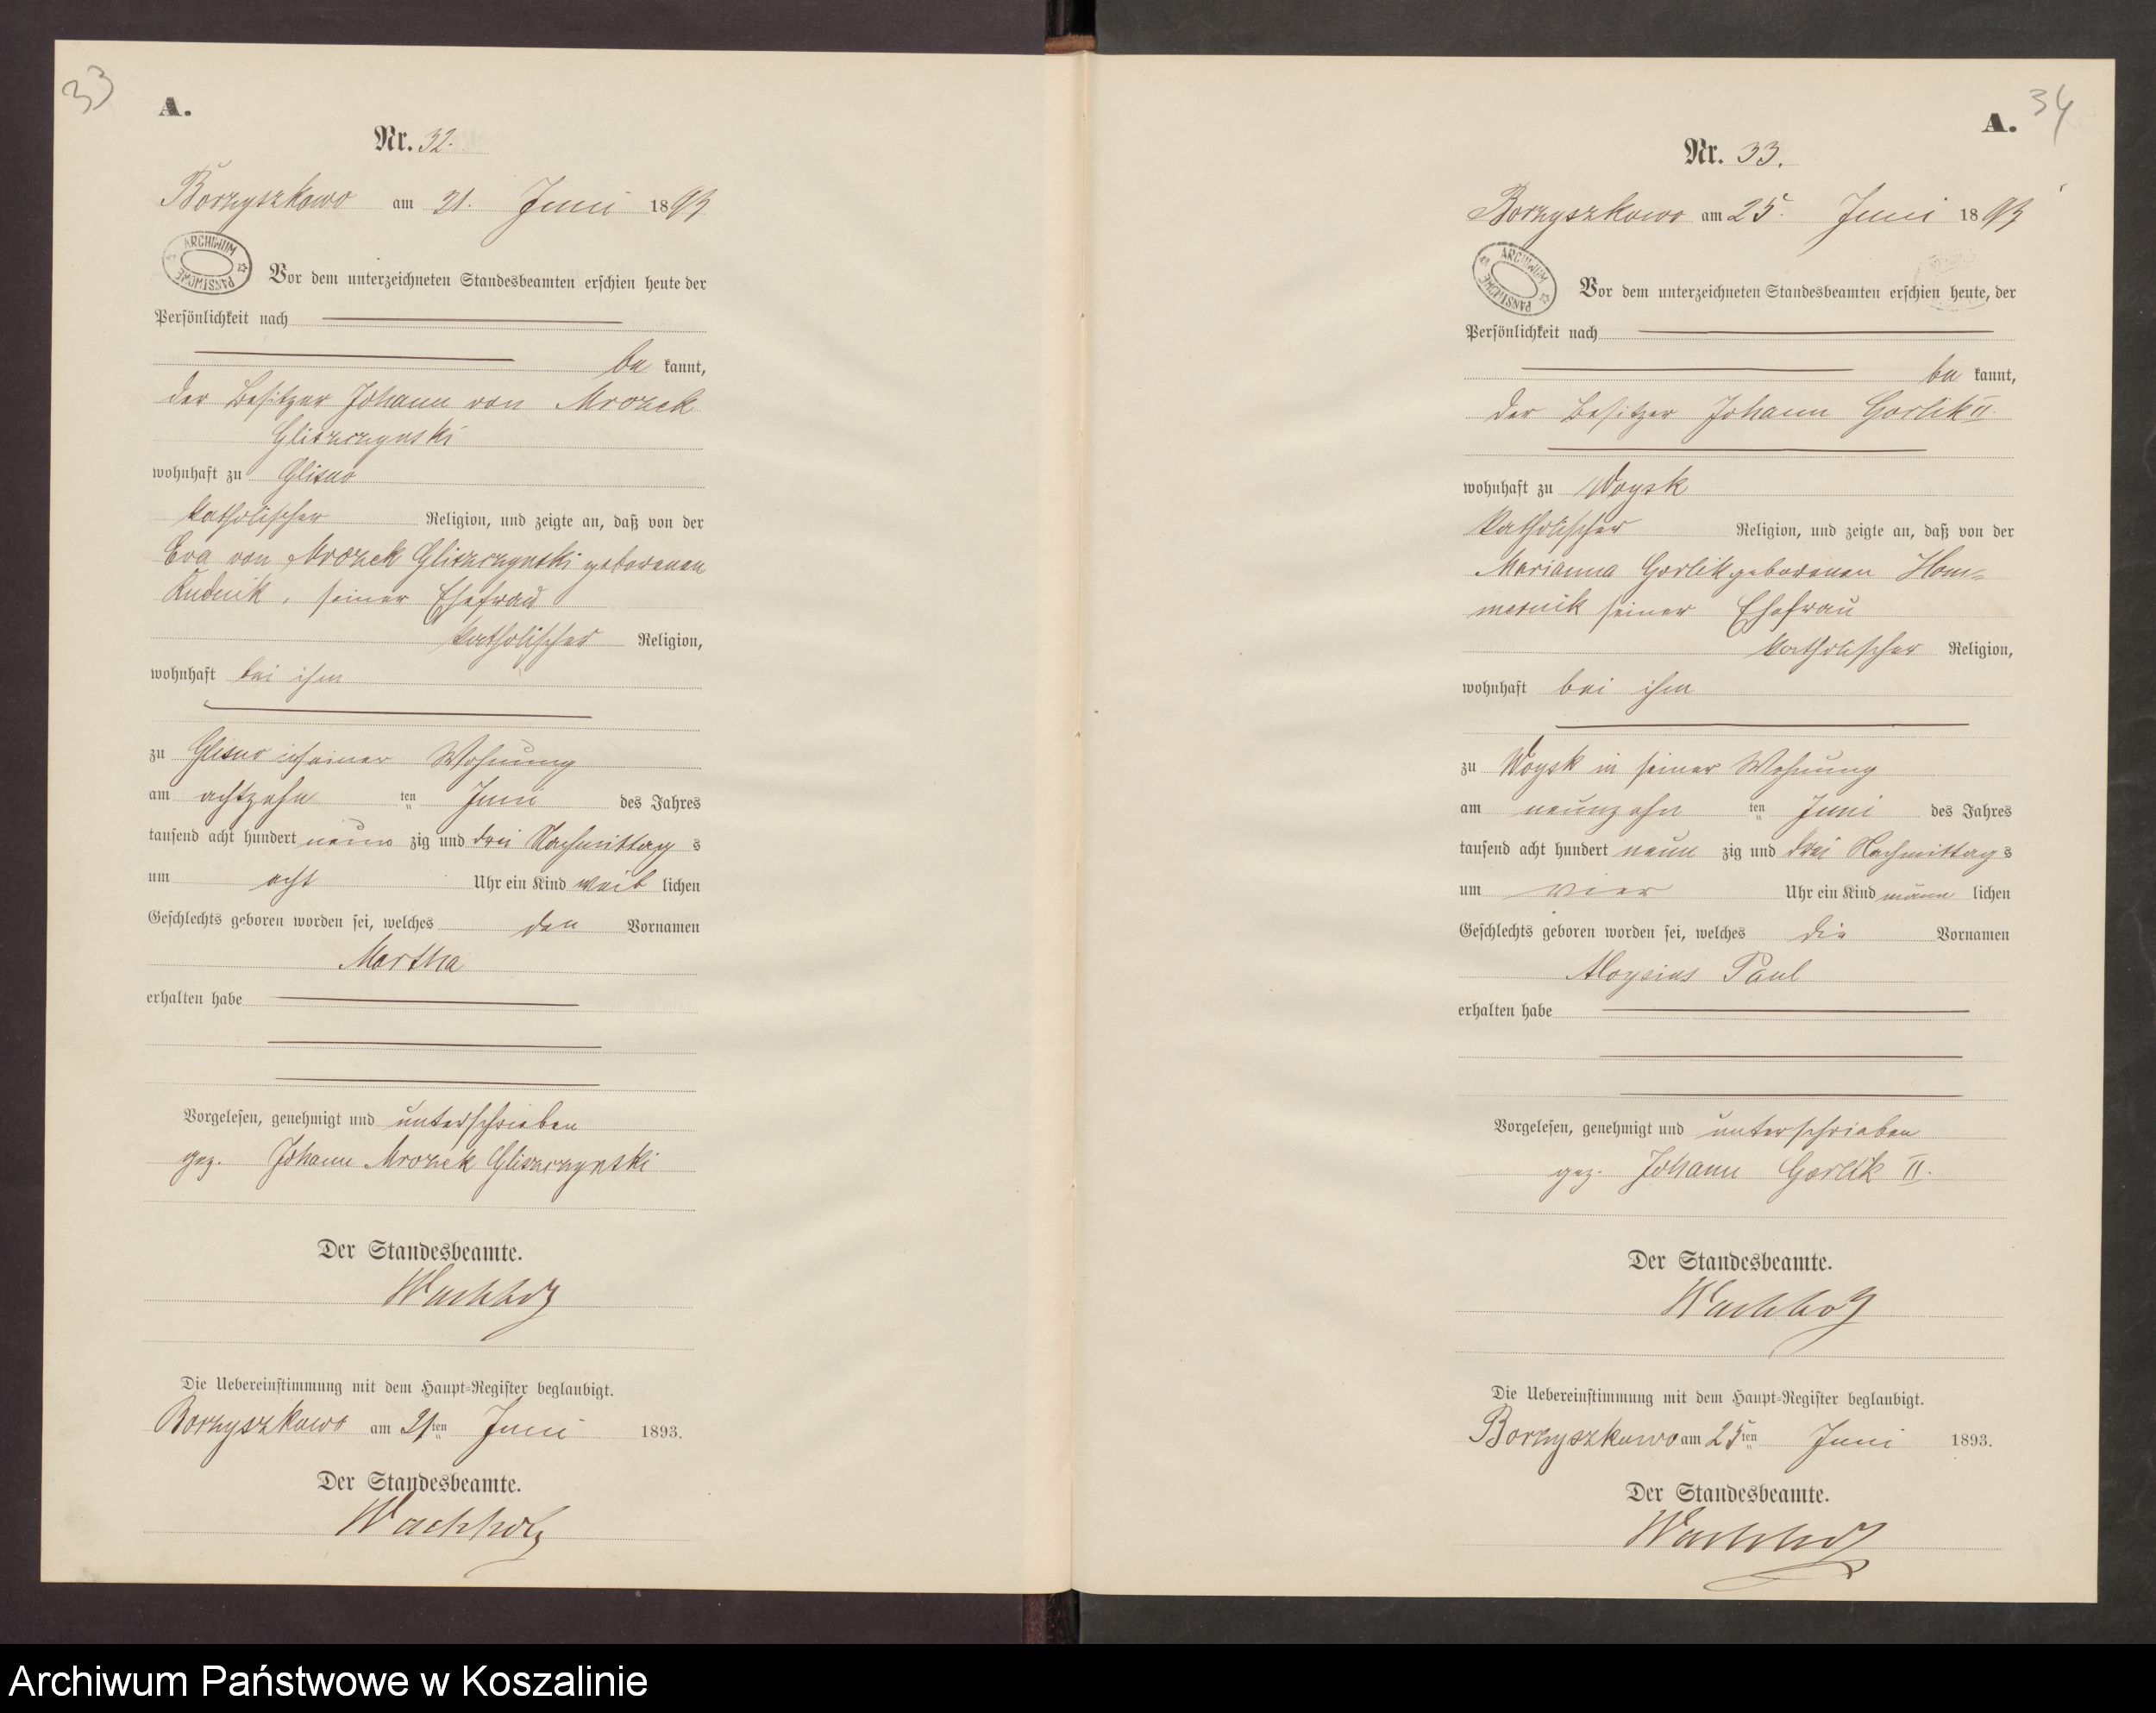 33
A.
Nr. 32.
Borzyszkowo am 21. Juni 1893
ARCHIWUM PAŃSTWOWE
Vor dem unterzeichneten Standesbeamten erschien heute der
Persönlichkeit nach
be kannt,
der Besitzer Johann von Mrozek
Gliszczynski
wohnhaft zu Glisno
katholischer Religion, und zeigte an, daß von der
Eva von Mrozek Gliszczynski geborenen
Rudnik, seiner Ehefrau
katholischer Religion,
wohnhaft bei ihm
zu Glisno in seiner Wohnung
am achtzehn ten Juni des Jahres
tausend acht hundert neun zig und drei Nachmittag s
um acht Uhr ein Kind weib lichen
Geschlechts geboren worden sei, welches den Vornamen
Martha
erhalten habe
Vorgelesen, genehmigt und unterschrieben
gez. Johann Mrozek Gliszczynski
Der Standesbeamte.
Wachholz
Die Uebereinstimmung mit dem Haupt-Register beglaubigt.
Borzyszkowo am 21ten Juni 1893.
Der Standesbeamte.
Wachholz
34
A.
Nr. 33.
Borzyszkowo am 25. Juni 1893
ARCHIWUM PAŃSTWOWE
Vor dem unterzeichneten Standesbeamten erschien heute, der
Persönlichkeit nach
be kannt,
der Besitzer Johann Gorlik II.
wohnhaft zu Woysk
katholischer Religion, und zeigte an, daß von der
Marianna Gorlik geborenen Hom-
mernik seiner Ehefrau
katholischer Religion,
wohnhaft bei ihm
zu Woysk in seiner Wohnung
am neunzehn ten Juni des Jahres
tausend acht hundert neun zig und drei Nachmittag s
um vier Uhr ein Kind männ lichen
Geschlechts geboren worden sei, welches die Vornamen
Aloysius Paul
erhalten habe
Vorgelesen, genehmigt und unterschrieben
gez. Johann Gorlik II.
Der Standesbeamte.
Wachholz
Die Uebereinstimmung mit dem Haupt-Register beglaubigt.
Borzyszkowo am 25ten Juni 1893.
Der Standesbeamte.
Wachholz
Archiwum Państwowe w Koszalinie